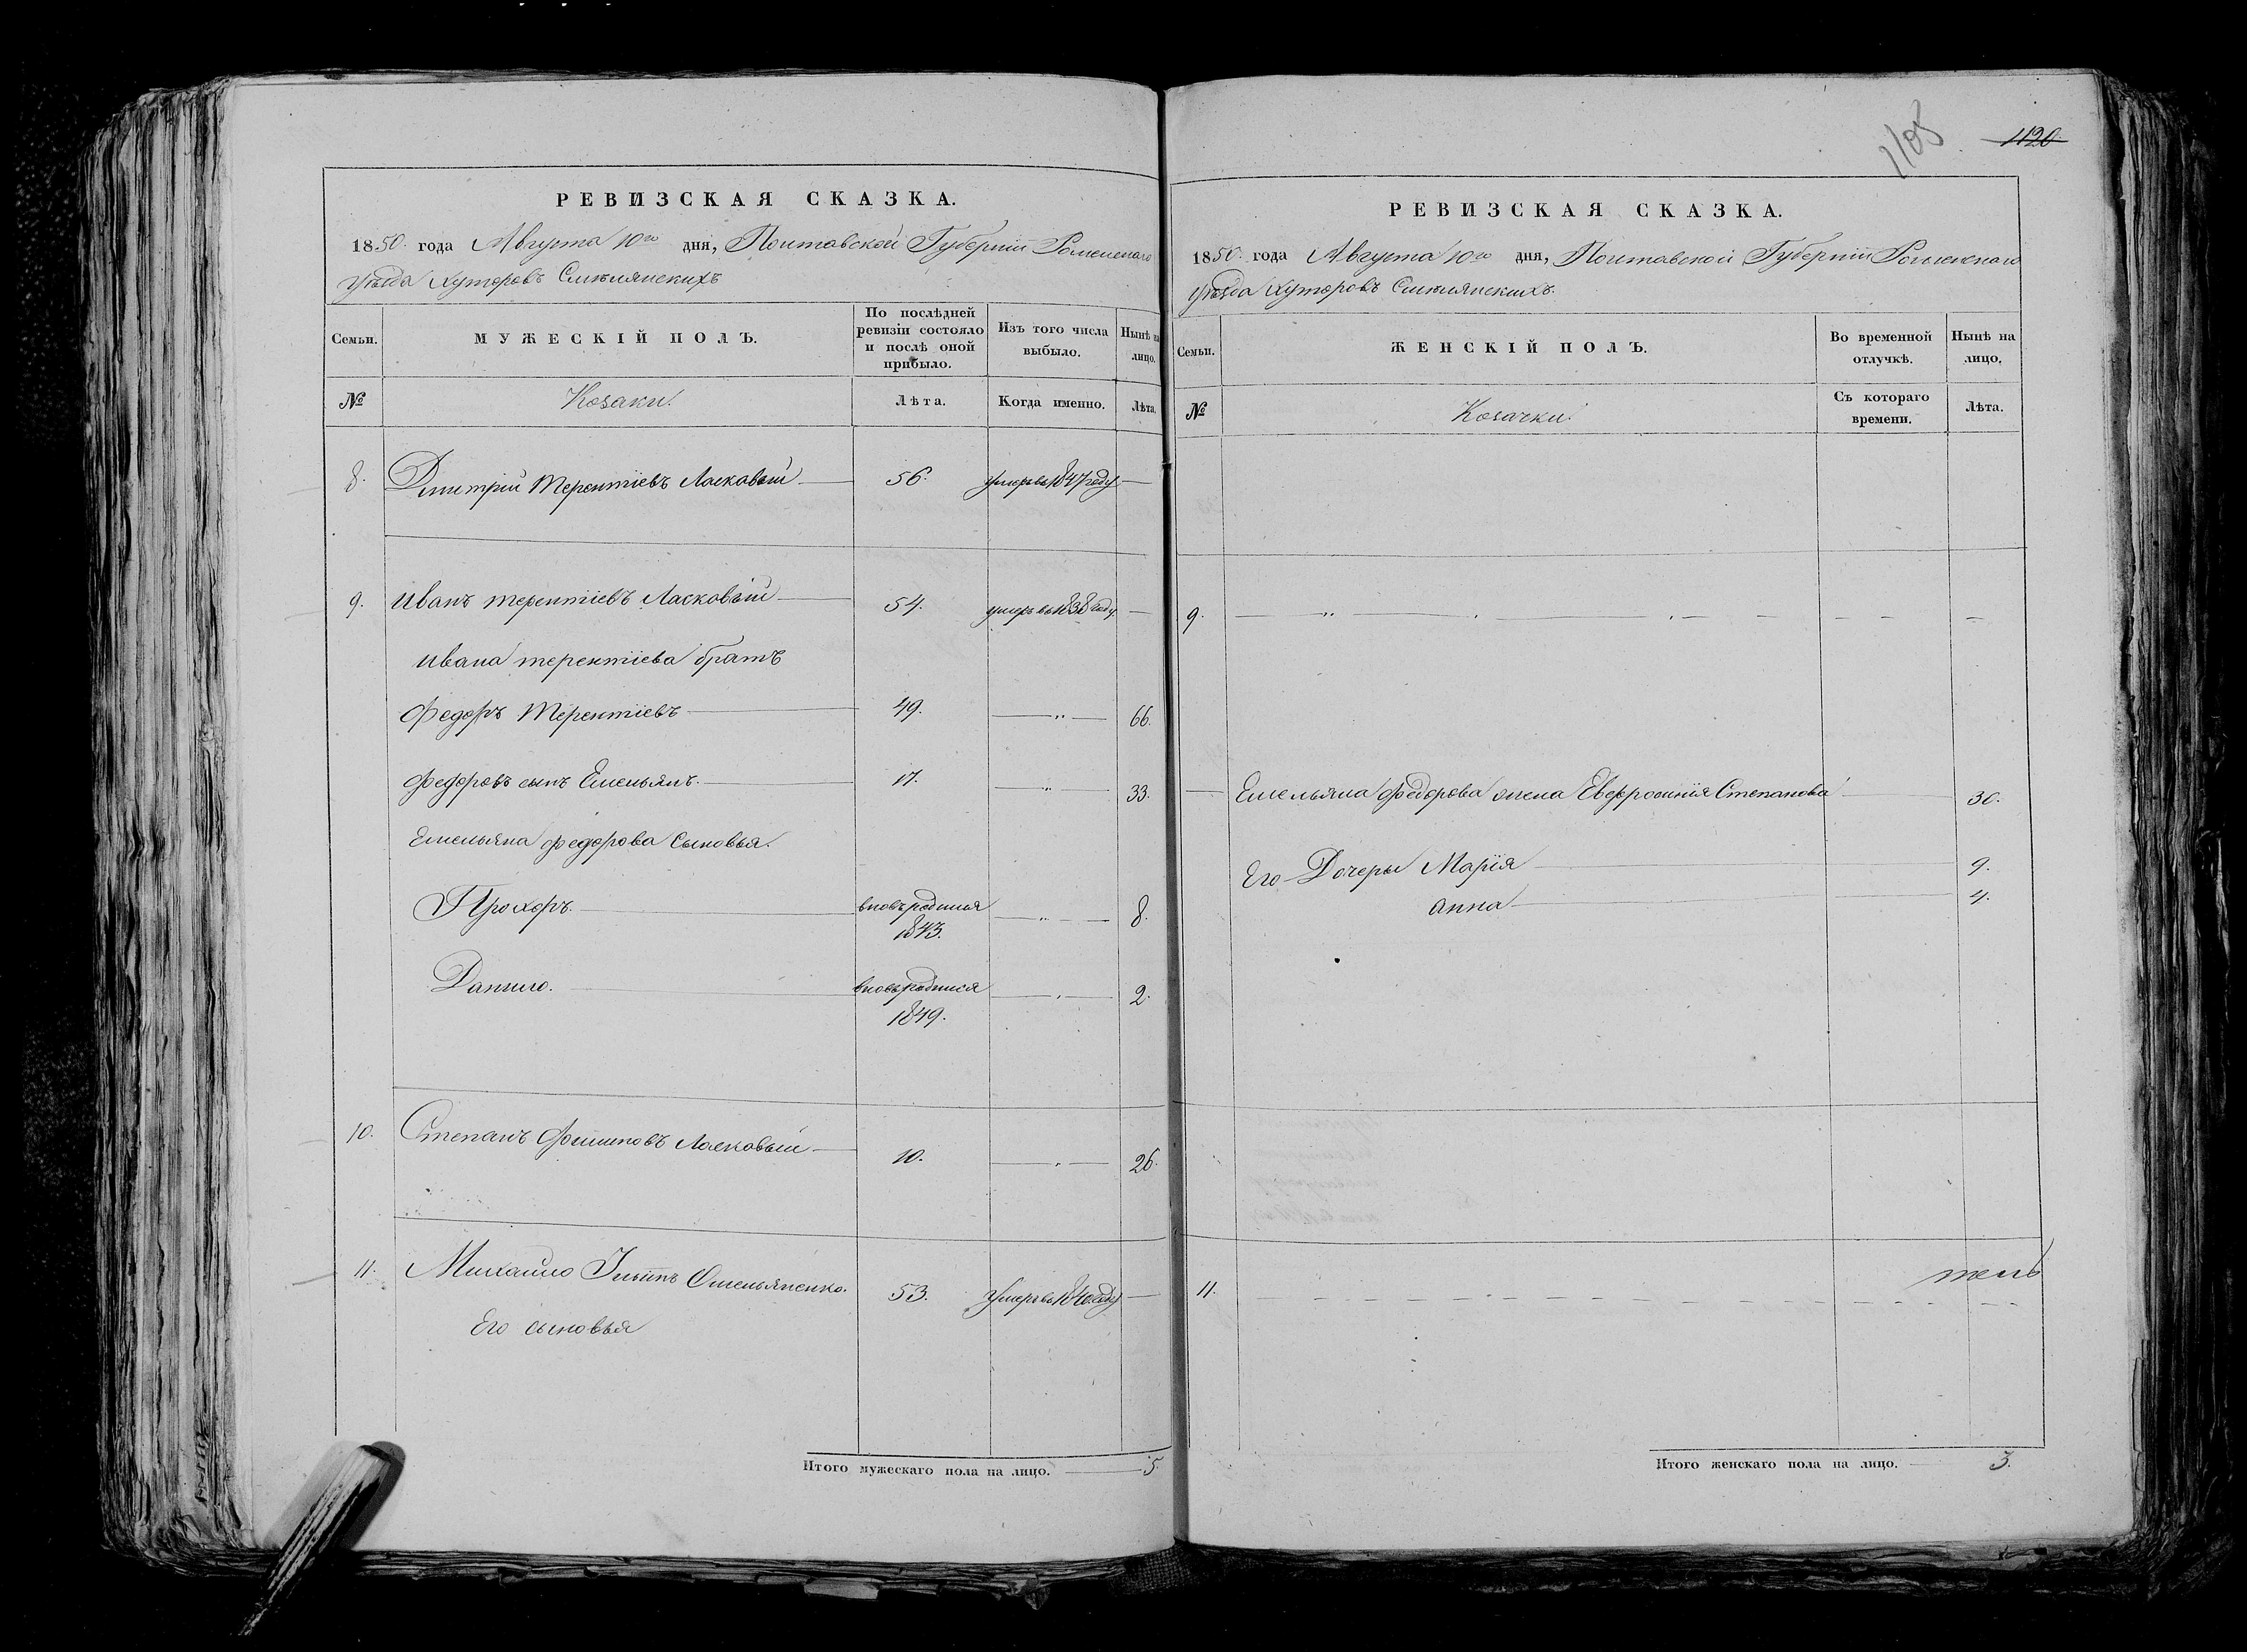 РЕВИЗСКАЯ СКАЗКА.
1850. года Августа 10го дня, Полтавской Губерніи Роменскаго
уѣзда Хуторовъ
Семьи.
МУЖЕСКІЙ ПОЛЪ.
По послѣдней ревизіи состояло и послѣ оной прибыло.
Изъ того числа выбыло.
Нынѣ на лицо.
№
Козаки.
Лѣта.
Когда именно.
Лѣта.
8. Дмитрій Терентіевъ Ласковый 56. умеръ въ 1847 году
9. Иванъ Терентіевъ Ласковый 54. умеръ въ 1838 году
Ивана Терентіева братъ
Федоръ Терентіевъ 49. 66.
Федоровъ сынъ Емельянъ. 17. 33.
Емельяна Федорова сыновья.
Прохоръ. вновь родился 8.
1843.
Данило. вновь родился 2.
1849.
10. Степанъ Филиповъ Ласковый 10. 26.
11. Михайло Ильинъ Омельяненко. 53. Умеръ въ 1840 году
Его сыновья
Итого мужескаго пола на лицо. 5.
1105
1120.
РЕВИЗСКАЯ СКАЗКА.
1850. года Августа 10го дня, Полтавской Губерніи Роменскаго
уѣзда Хуторовъ
Семьи.
ЖЕНСКІЙ ПОЛЪ.
Во временной отлучкѣ.
Нынѣ на лицо.
№
Козачки.
Съ котораго времени.
Лѣта.
9.
Емельяна Федорова жена Евфросинія Степанова 30.
Его Дочеры Марія 9.
Анна 4.
11.
Итого женскаго пола на лицо. 3.